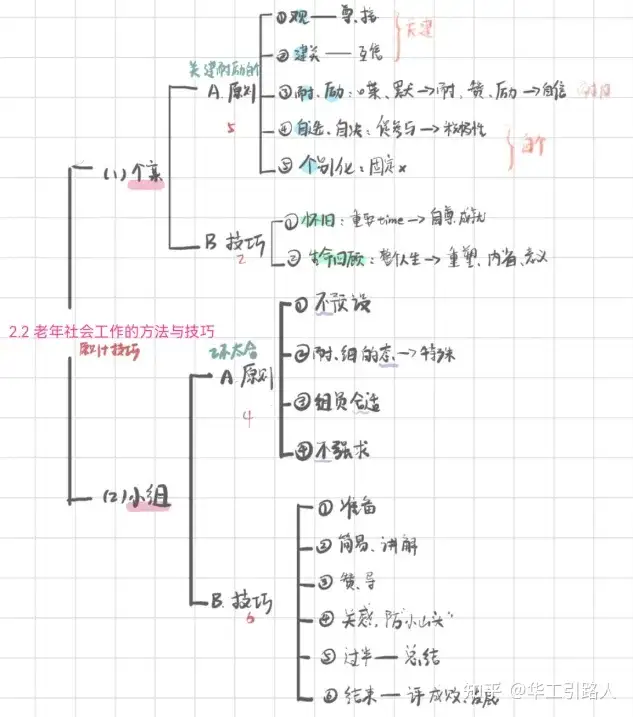 2.2 老年社会工作的方法与技巧
原则+技巧
(1) 个案
关建耐励自个
A. 原则
5
① 观 — 尊、接
② 建关 — 互信
关建
③ 耐、励: 啰菜、默 → 耐、赞、励 → 自信
④ 自选、自决: 促参与 → 积极性
⑤ 个别化: 固定x
自个
B 技巧
2
① 怀旧: 重要time → 自尊,成就
② 生命回顾: 整人生 → 重塑、内省、意义
(2) 小组
A. 原则
4
① 不预设
② 耐、组的态 → 特殊
③ 组员合适
④ 不强求
B. 技巧
6
① 准备
② 简易、讲解
③ 赞、导
④ 关感, 防"小山头"
⑤ 过半 — 总结
⑥ 结束 — 评成败
知乎 @华工引路人